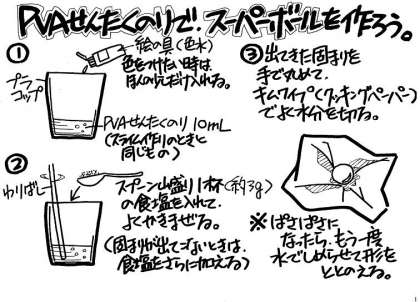 PVAせんたくのりで、スーパーボールを作ろう。
①
絵の具(色水)
色をつけたい時は
ほんの少しだけ入れる。
プラ
コップ
PVAせんたくのり 10mL
(スライム作りのときと
同じもの)
②
わりばし
スプーン山盛り1杯(約3g)
の食塩を入れて
よくかきまぜる。
(固まりが出てこないときは、
食塩をさらに加える)
③出てきた固まりを
手で丸めて、
キムワイプ(クッキングペーパー)
でよく水分を切る。
※ぱさぱさに
なったら、もう一度
水でしめらせて形を
ととのえる。